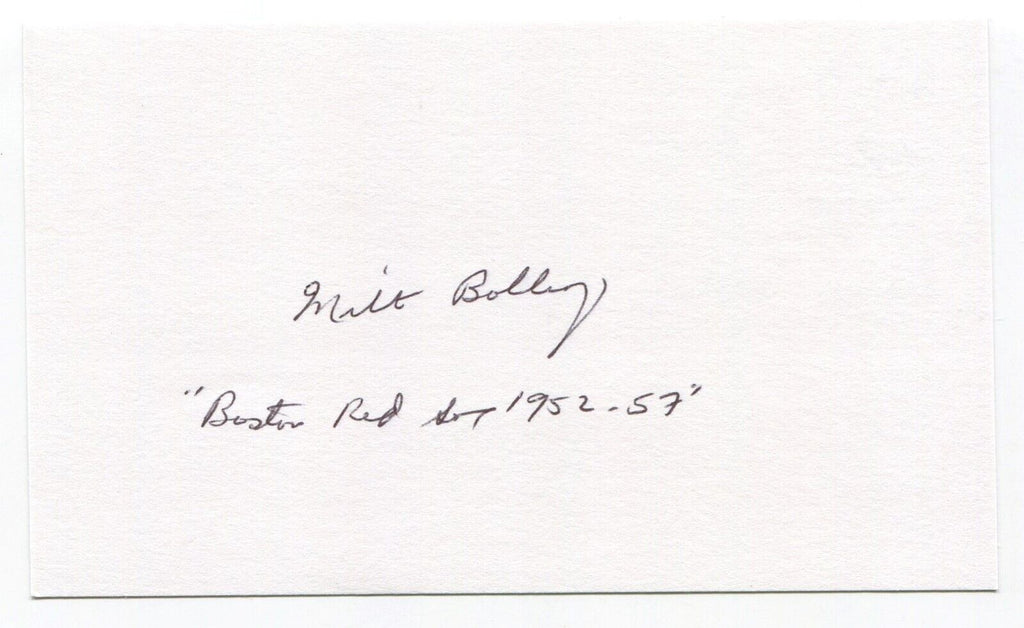 Milt Bolling
"Boston Red Sox 1952-57"